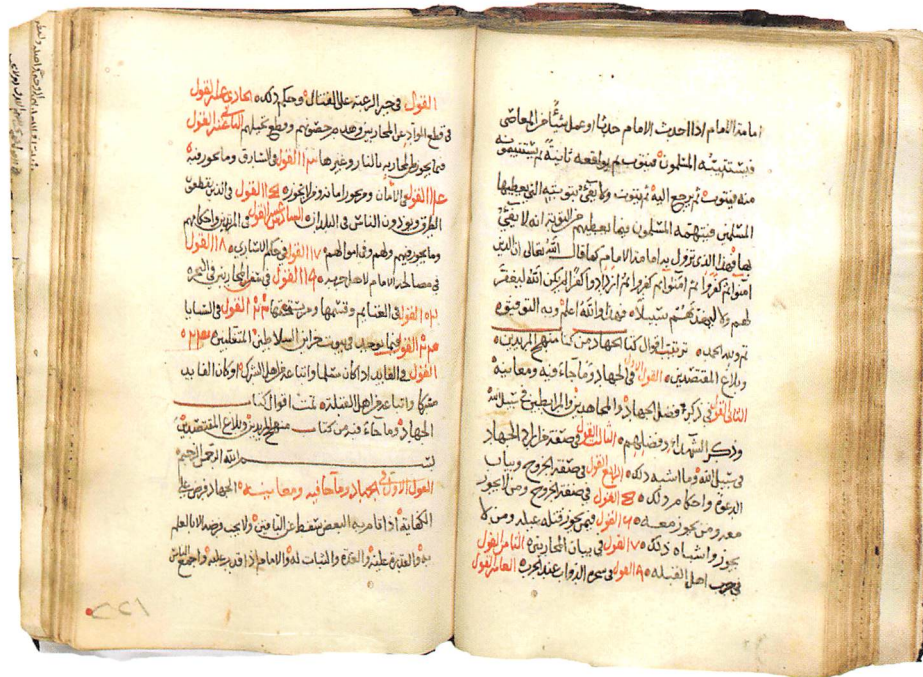 امامة الامام اذا احدث الامام حدثا او عمل شيئا من المعاصي
فيستتيبه المسلمون فيتوب ثم يواقعه ثانية ثم يستتيبونه
منه فيتوب ثم يرجع اليه ثم يتوب ولا يفي بتوبته التي يعطيها
المسلمين فيتهمه المسلمون فيما يعطيهم من التوبة انه لا يفي
بها فهذا الذي تزول به امامة الامام كما قال الله تعالى ان الذين
امنوا ثم كفروا ثم امنوا ثم كفروا ثم ازدادوا كفرا لم يكن الله ليغفر
لهم ولا ليهديهم سبيلا فهذا والله اعلم وبه التوفيق
تم وبه الحمد ترتيب اقوال كتاب الجهاد من كتاب منهج المريدين
وبلاغ المقتصدين القول الاول في الجهاد وما جاء فيه ومعانيه
الثاني القول في ذكر فضل الجهاد والمجاهدين والمرابطين في سبيل الله
وذكر الشهداء وفضلهم الثالث القول في صفة الجهاد
في سبيل الله وما اشبه ذلك الرابع القول في صفة الخروج وبيان
الدعوة واحكام ذلك ٥ القول في صفة الخروج ومن لا يجوز
ومن يجوز معه ٦ القول فيمن يجوز قتله عيله ومن لا
يجوز واشباه ذلك ٧ القول في بيان المحاربين الثامن القول
في حرب اهل القبله ٩ القول في الدواب عند الحرب العاشر القول
القول في جبر الرعية على القتال وحكم ذلك الحادي عشر القول
في قطع المواد عن المحاربين وهدم حصنهم وقطع نخيلهم الثاني عشر القول
فيما يجوز المحاربه بالنار وغيرها ١٣ القول في السارق وما يجوز فيه
١٤ القول في الامان ومن يجوز امانه ومن لا يجوز ١٥ القول في الذين يقطعون
الطرق ويؤذون الناس في البلدان السادس عشر القول في واحكامهم
وما يجوز فيهم ولهم وفي اموالهم ١٧ القول في حكم الاسارى ١٨ القول
في مصالحة الامام لاهل حربه ١٩ القول في المحاربين في البحر
٢٠ القول في الغنايم وقسمها القول في السبايا
القول فيما يوجد في بيوت خزاين السلاطين المتغلبين ٢٣
القول في القايد اذا كان مسلما واتباعه من اهل الشرك او كان القايد
مشركا واتباعه من اهل القبلة تمت اقوال كتاب
الجهاد وما جاء فيه من كتاب منهج المريدين وبلاغ المقتصدين
بسم الله الرحمن الرحيم
القول الاول في الجهاد وما جا فيه ومعانيه الجهاد فرض على
الكفاية اذا قام به البعض سقط عن الباقين ولا يجب فرضه الا بالعلم
به والقدرة عليه والعدة والثبات له والامام اذا قدر عليه واجمع الناس